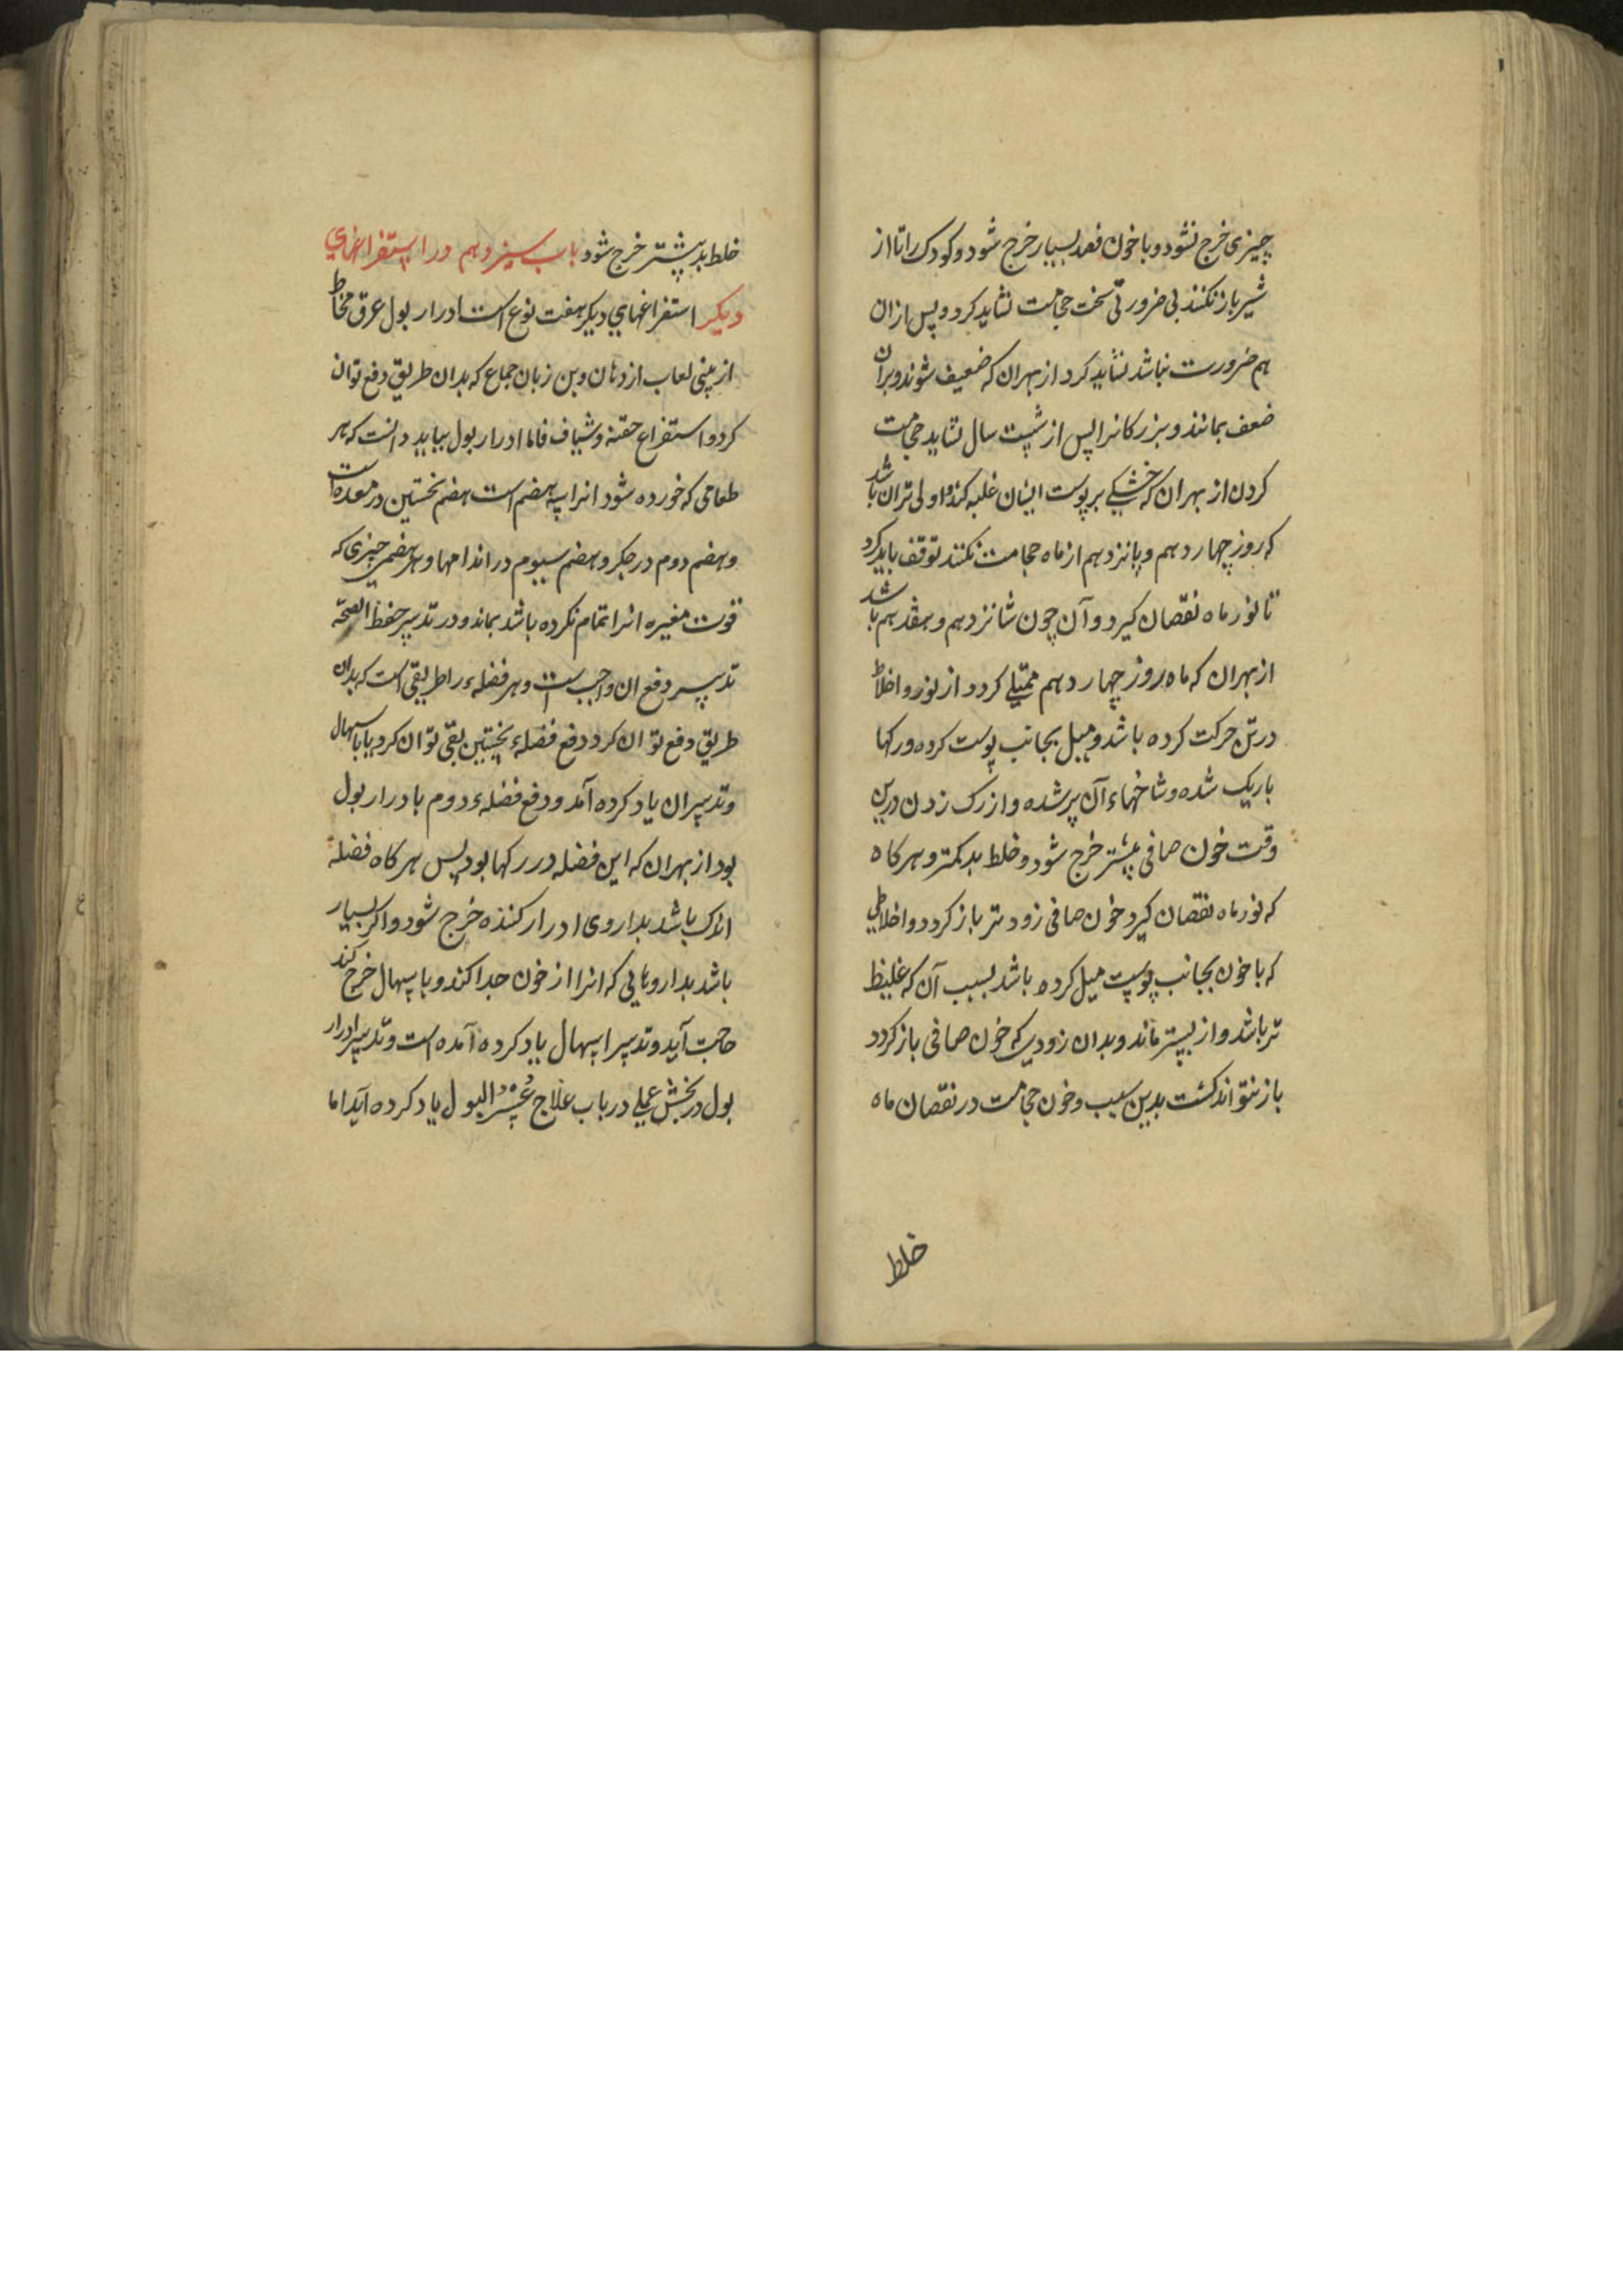 چیزی خرج نشود و با خون فصد بسیار خرج شود و کودک را تا از
شیر باز نکنند بی ضرورتی سخت حجامت نشاید کرد و پس از ان
هم ضرورت نباشد نشاید کرد از بهر ان که ضعیف شوند و بران
ضعف بمانند و بزرکانرا پس از شصت سال نشاید حجامت
کردن از بهر ان که خشکی بر پوست ایشان غلبه کند و اولی تر ان باشد
که روز چهاردهم و پانزدهم از ماه حجامت نکنند توقف باید کرد
تا نور ماه نقصان کیرد و آن چون شانزدهم و هفدهم باشد
از بهر ان که ماه روز چهاردهم ممتلی کردد از نور و اخلاط
در تن حرکت کرده باشد و میل بجانب پوست کرده و رکها
باریک شده و شاخهاء آن پر شده و از رک زدن درین
وقت خون صافی بیشتر خرج شود و خلط بد کمتر و هر کاه
که نور ماه نقصان کیرد خون صافی زودتر باز کردد و اخلاطی
که با خون بجانب پوست میل کرده باشد بسبب آن که غلیظ
تر باشد و از پستر ماند و بدان زودی که خون صافی باز کردد
باز نتواند کشت بدین سبب و خون حجامت در نقصان ماه
خلط
خلط بد بیشتر خرج شود باب سیزدهم در استفراغهای
دیکر استفراغهای دیکر هفت نوع است ادرار بول عرق مخاط
از بینی لعاب از دهان و بن زبان جماع که بدان طریق دفع توان
کرد و استفراغ حقنه و شیاف فاما ادرار بول بباید دانست که هر
طعامی که خورده شود انرا سه هضم است هضم نخستین در معده است
و هضم دوم در جکر و هضم سیوم در اندامها و هر هضمی چیزی که
قوت مغیره انرا تمام نکرده باشد بماند و در تدبیر حفظ الصحّه
تدبیر دفع ان واجب است و هر فضلهء را طریقی است که بدان
طریق دفع توان کرد دفع فضلهء نخستین بقی توان کرد یا باسهال
و تدبیر ان یاد کرده آمد و دفع فضلهء دوم بادرار بول
بود از بهر ان که این فضله در رکها بود پس هر کاه فضله
اندک باشد بداروی ادرار کننده خرج شود و اکر بسیار
باشد بداروهایی که انرا از خون جدا کند و باسهال خرج کند
حاجت آید و تدبیر اسهال یاد کرده آمده است و تدبیر ادرار
بول در بخش عملی در باب علاج عُسْرُ البول یاد کرده آید اما